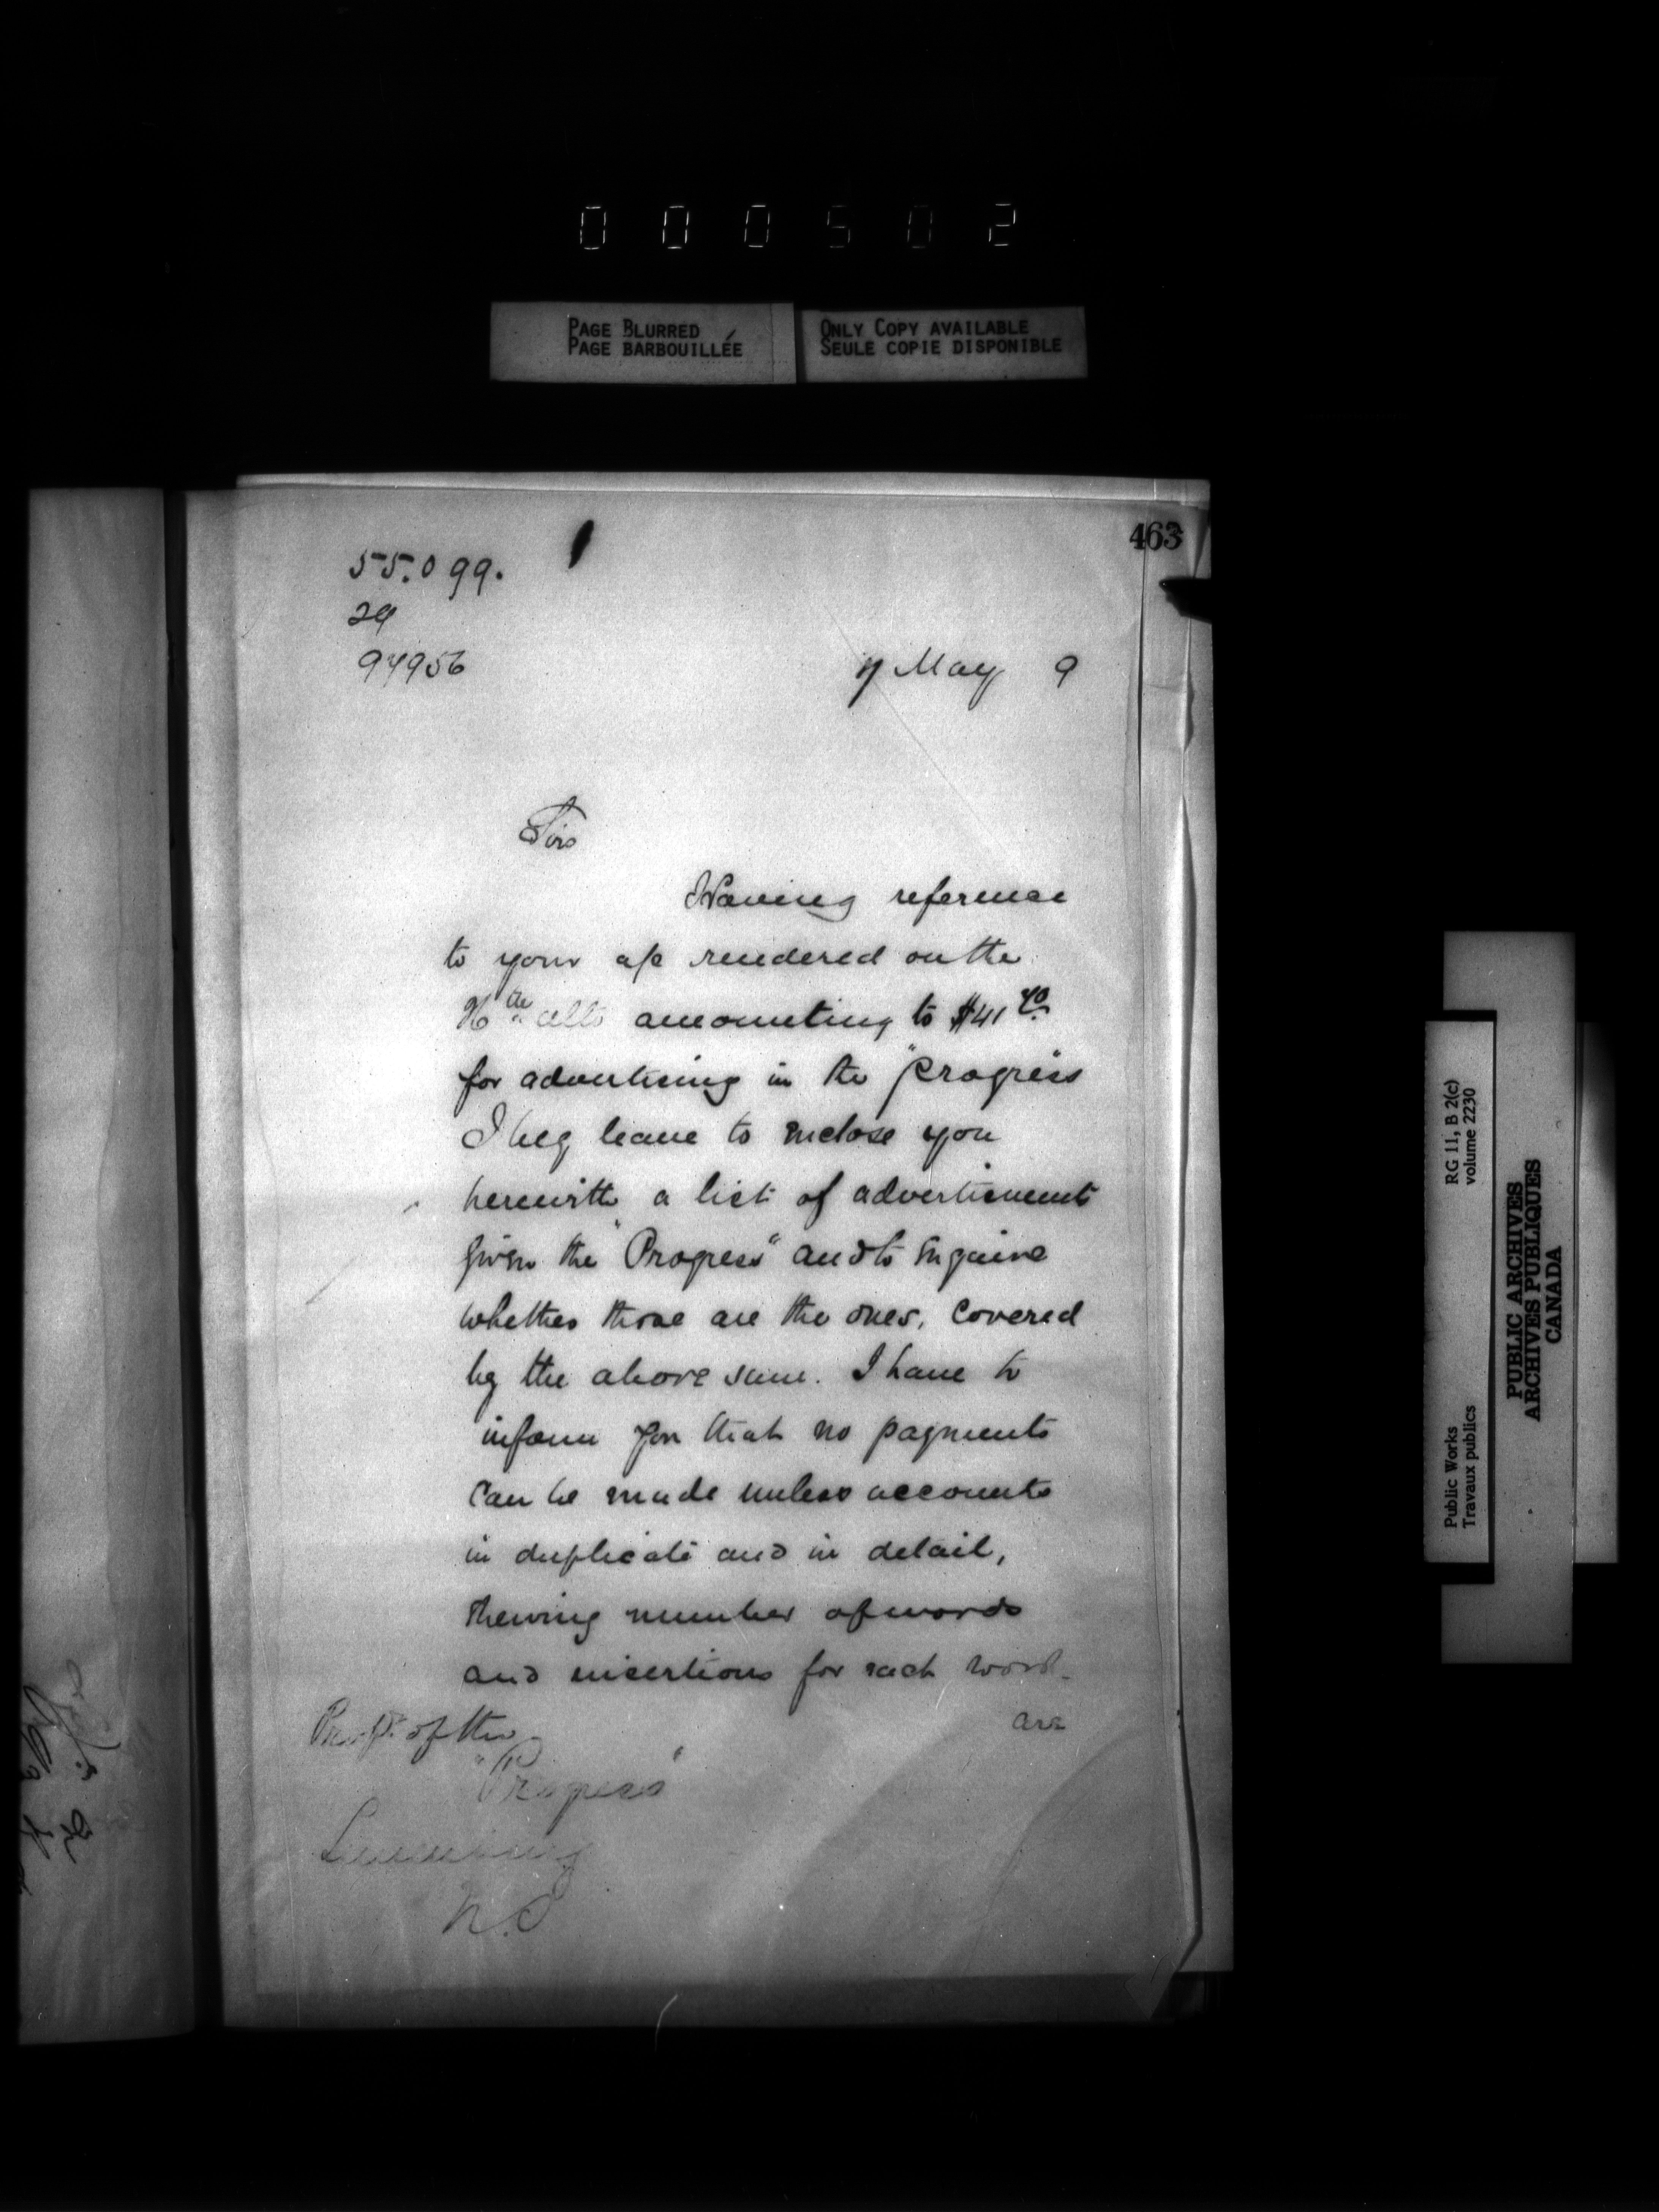 000502
PAGE BLURRED
PAGE BARBOUILLÉE
ONLY COPY AVAILABLE
SEULE COPIE DISPONIBLE
463
55.099.
29
94956
7 May 9
Sir
Having reference
to your a/c rendered on the
16th ulto amounting to $41 40
for advertising in the "Progress
I beg leave to inclose you
herewith a list of advertisements
given the "Progress" and to inquire
whether those are the ones, covered
by the above sum. I have to
inform you that no payments
can be made unless accounts
in duplicate and in detail,
shewing number of words
and insertions for each work.
are
of the
"Progress"
Lunenburg
N.S
Public Works
Travaux publics
RG 11, B 2(c)
volume 2230
PUBLIC ARCHIVES
ARCHIVES PUBLIQUES
CANADA